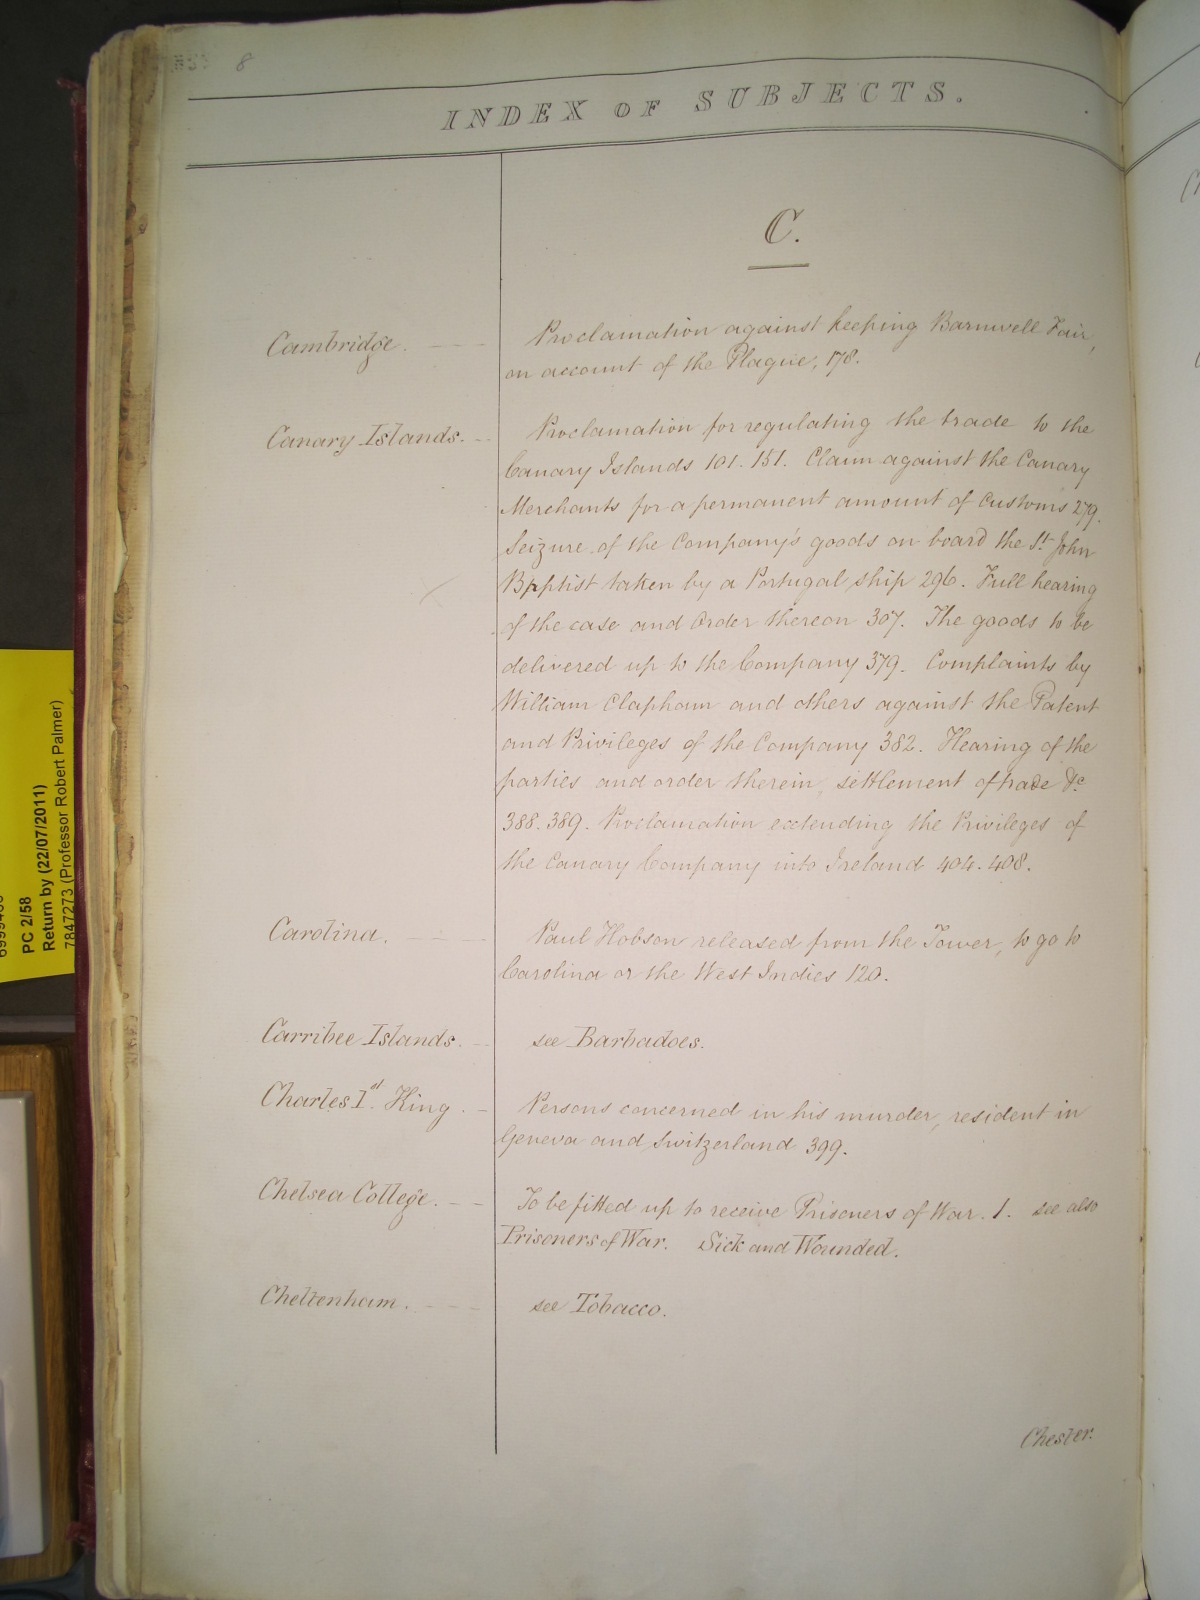 8
INDEX OF SUBJECTS.
C.
Cambridge.
Proclamation against keeping Barnwell Fair,
on account of the Plague, 178.
Canary Islands.
Proclamation for regulating the trade to the
Canary Islands 101. 151. Claim against the Canary
Merchants for a permanent amount of Customs 279.
Seizure of the Company's goods on board the St. John
Bpptist taken by a Portugal ship 296. Full hearing
of the case and Order thereon 307. The goods to be
delivered up to the Company 379. Complaints by
William Clapham and others against the Patent
and Privileges of the Company 382. Hearing of the
parties and order therein, settlement of trade &c
388. 389. Proclamation extending the Privileges of
the Canary Company into Ireland 404. 408.
Carolina.
Paul Hobson released from the Tower, to go to
Carolina or the West Indies 120.
Carribee Islands.
see Barbadoes.
Charles 1st. King.
Persons concerned in his murder, resident in
Geneva and Switzerland 399.
Chelsea College.
To be fitted up to receive Prisoners of War. 1. see also
Prisoners of War. Sick and Wounded.
Cheltenham.
see Tobacco.
Chester.
PC 2/58
Return by (22/07/2011)
7847273 (Professor Robert Palmer)